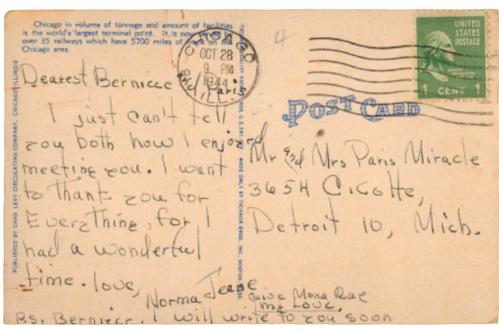 Chicago in volume of tonnage and amount of facilities
is the world's largest terminal point. It is now
over 35 railways which have 5700 miles of track on the
Chicago area.
4
CHICAGO
OCT 28
9 PM
1944
ILL.
UNITED
STATES
POSTAGE
1 CENT 1
POST CARD
Dearest Bernice
& Paris
I just can't tell
you both how I enjoyed
meeting you. I want
to thank you for
Everything, for I
had a wonderful
time. love,
Norma Jeane
P.S. Bernice. I will write to you soon
Give Mona Rae
my Love
Mr and Mrs Paris Miracle
3654 Cicotte,
Detroit 10, Mich.
PUBLISHED BY CHAS. LEVY CIRCULATING COMPANY, CHICAGO, ILLINOIS